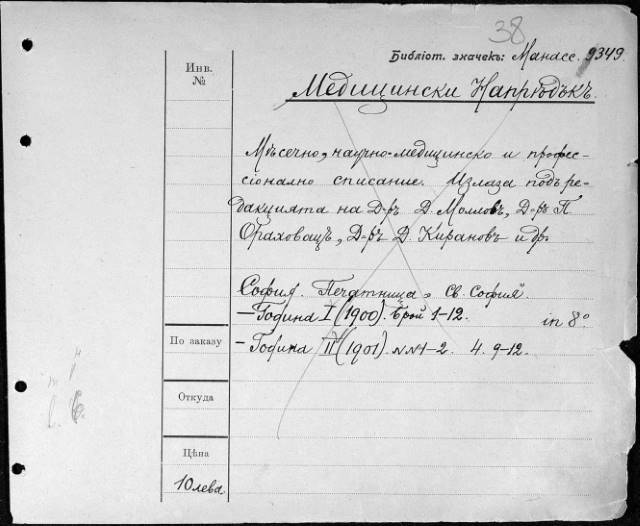 38
Библіот. значекъ: Манасс. 9349.
Инв. №
Медицински Напрѣдъкъ.
Мѣсечно, научно-медицинско и профес-
сіонално списание. Излаза подъ ре-
дакцията на Д-ръ Д. Молловъ, Д-ръ П.
Ораховацъ, Д-ръ Д. Кирановъ и др.
София. Печатница „Св. София“.
— Година I (1900). Брой 1-12.
in 8°
По заказу
— Година II (1901). №№ 1-2. 4. 9-12.
Откуда
Цѣна
10 лева.